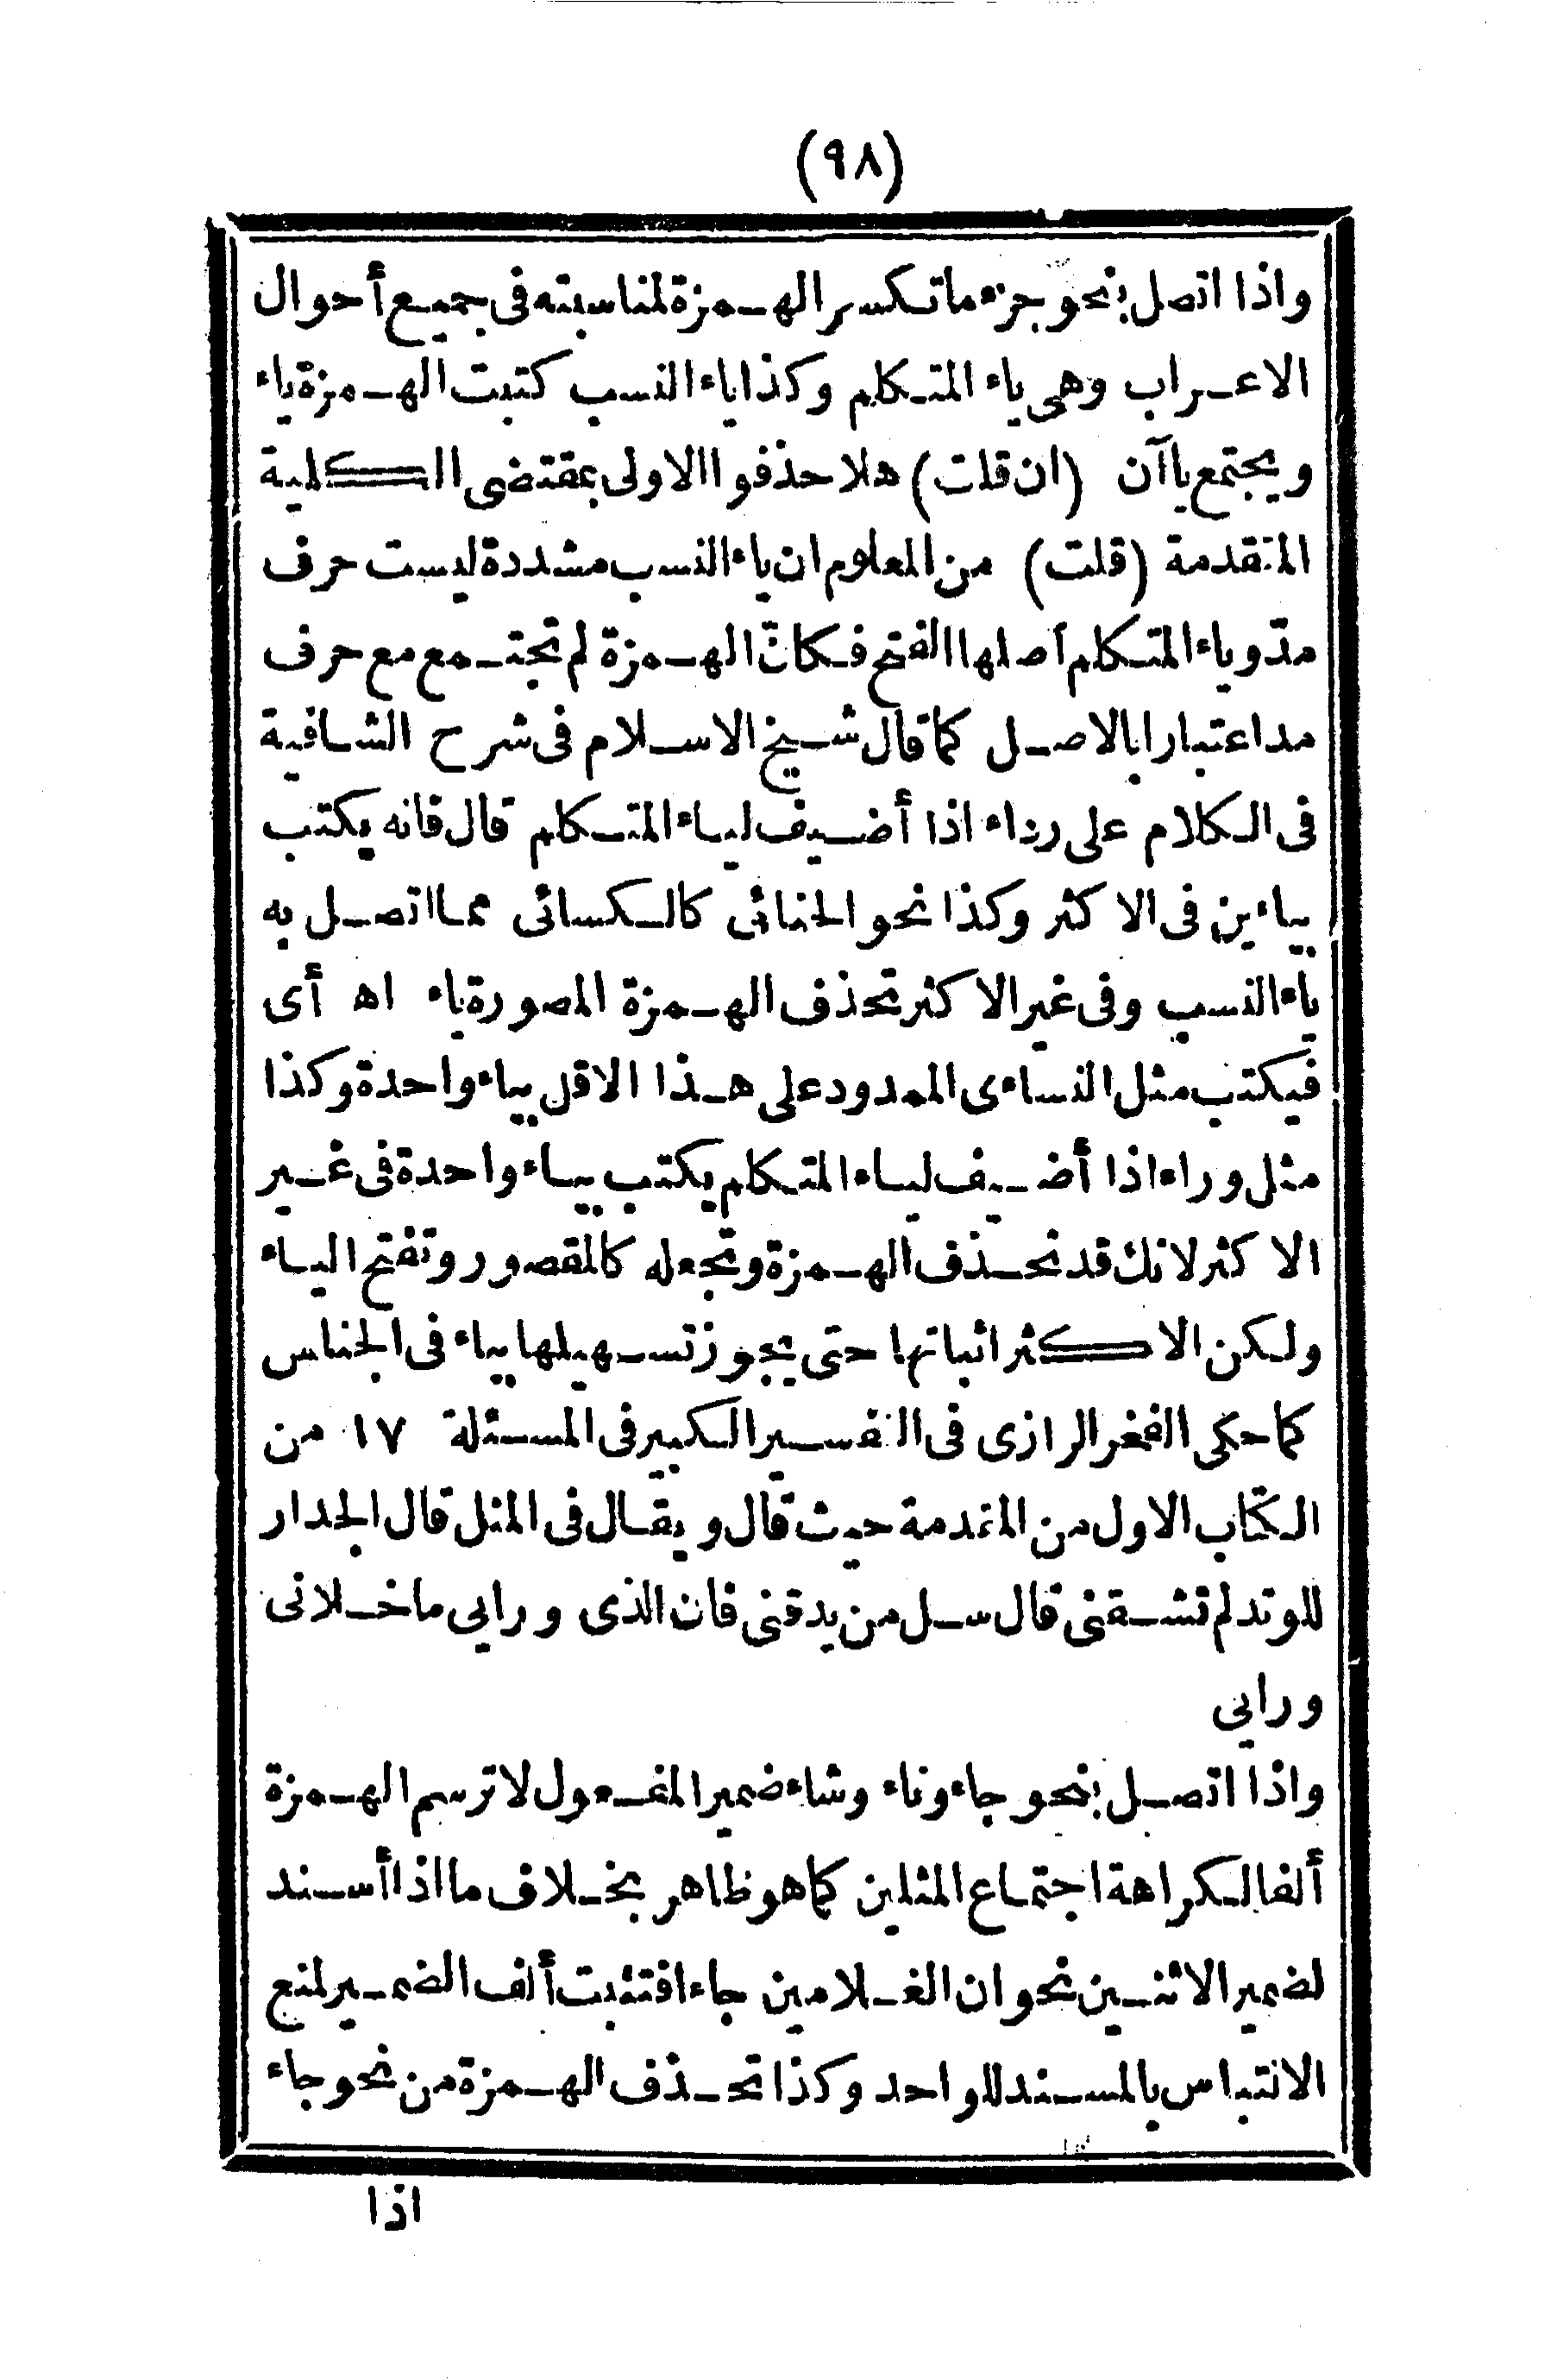 (٩٨)
واذا اتصل بنحو جزء ما تكسر الهمزة لمناسبته فى جميع أحوال
الاعراب وهى ياء المتكلم وكذا ياء النسب كتبت الهمزة ياء
ويجتمع ياآن (ان قلت) هلا حذفوا الاولى بمقتضى الكلية
المتقدمة (قلت) من المعلوم ان ياء النسب مشددة ليست حرف
مدّ وياء المتكلم أصلها الفتح فكانّ الهمزة لم تجتمع مع حرف
مد اعتبارا بالاصل كما قال شيخ الاسلام فى شرح الشافية
فى الكلام على رداء اذا أضيف لياء المتكلم قال فانه يكتب
بياءين فى الاكثر وكذا نحو الحنائى كالكسائى مما اتصل به
ياء النسب وفى غير الاكثر تحذف الهمزة المصورة ياء اه أى
فيكتب مثل النساءى الممدود على هذا الاقل بياء واحدة وكذا
مثل وراء اذا أضيف لياء المتكلم يكتب بياء واحدة فى غير
الاكثر لانك قد تحذف الهمزة وتجعله كالمقصور وتفتح الياء
ولكن الاكثر اثباتها حتى يجوز تسهيلها بياء فى الجناس
كما حكى الفخر الرازى فى التفسير الكبير فى المسئلة ١٧ من
الكتاب الاول من المقدمة حيث قال ويقال فى المثل قال الجدار
للوتد لم تشقنى قال سل من يدقنى فان الذى ورايى ما خلانى
ورايى
واذا اتصل بنحو جاء وناء وشاء ضمير المفعول لا ترسم الهمزة
ألفا لكراهة اجتماع المثلين كما هو ظاهر بخلاف ما اذا أسند
لضمير الاثنين نحو ان الغلامين جاءا فتثبت ألف الضمير لمنع
الالتباس بالمسند للواحد وكذا تحذف الهمزة من نحو جاء
اذا